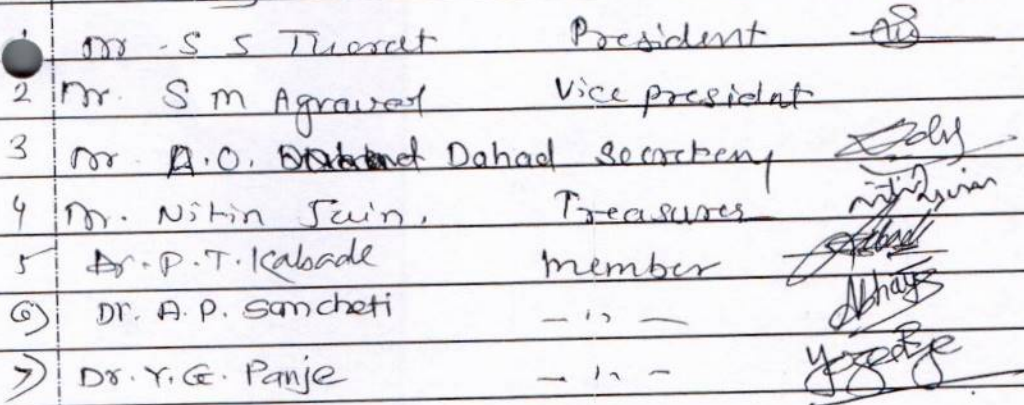 Dr. S S Thorat President
2 Dr. S M Agrawal Vice president
3 Dr. A.O. Dahad Secretary
4 Dr. Nitin Jain. Treasurer
5 Dr. P.T. Kabade member
6) Dr. A.P. Sancheti -〃-
7) Dr. Y.G. Panje -〃-